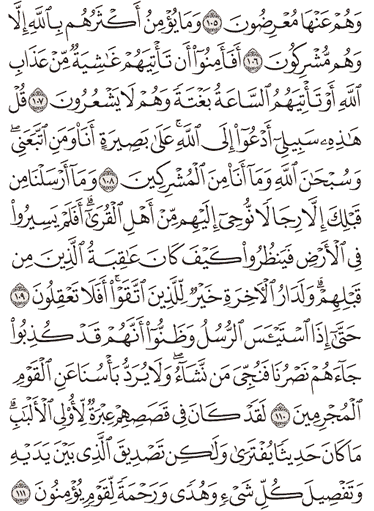 وَهُمْ عَنْهَا مُعْرِضُونَ ١٠٥ وَمَا يُؤْمِنُ أَكْثَرُهُم بِٱللَّهِ إِلَّا
وَهُم مُّشْرِكُونَ ١٠٦ أَفَأَمِنُوٓا۟ أَن تَأْتِيَهُمْ غَٰشِيَةٌ مِّنْ عَذَابِ
ٱللَّهِ أَوْ تَأْتِيَهُمُ ٱلسَّاعَةُ بَغْتَةً وَهُمْ لَا يَشْعُرُونَ ١٠٧ قُلْ
هَٰذِهِۦ سَبِيلِىٓ أَدْعُوٓا۟ إِلَى ٱللَّهِ ۚ عَلَىٰ بَصِيرَةٍ أَنَا۠ وَمَنِ ٱتَّبَعَنِى ۖ
وَسُبْحَٰنَ ٱللَّهِ وَمَآ أَنَا۠ مِنَ ٱلْمُشْرِكِينَ ١٠٨ وَمَآ أَرْسَلْنَا مِن
قَبْلِكَ إِلَّا رِجَالًا نُّوحِىٓ إِلَيْهِم مِّنْ أَهْلِ ٱلْقُرَىٰٓ ۗ أَفَلَمْ يَسِيرُوا۟
فِى ٱلْأَرْضِ فَيَنظُرُوا۟ كَيْفَ كَانَ عَٰقِبَةُ ٱلَّذِينَ مِن
قَبْلِهِمْ ۗ وَلَدَارُ ٱلْءَاخِرَةِ خَيْرٌ لِّلَّذِينَ ٱتَّقَوْا۟ ۗ أَفَلَا تَعْقِلُونَ ١٠٩
حَتَّىٰٓ إِذَا ٱسْتَيْـَٔسَ ٱلرُّسُلُ وَظَنُّوٓا۟ أَنَّهُمْ قَدْ كُذِبُوا۟
جَآءَهُمْ نَصْرُنَا فَنُجِّىَ مَن نَّشَآءُ ۖ وَلَا يُرَدُّ بَأْسُنَا عَنِ ٱلْقَوْمِ
ٱلْمُجْرِمِينَ ١١٠ لَقَدْ كَانَ فِى قَصَصِهِمْ عِبْرَةٌ لِّأُو۟لِى ٱلْأَلْبَٰبِ ۗ
مَا كَانَ حَدِيثًا يُفْتَرَىٰ وَلَٰكِن تَصْدِيقَ ٱلَّذِى بَيْنَ يَدَيْهِ
وَتَفْصِيلَ كُلِّ شَىْءٍ وَهُدًى وَرَحْمَةً لِّقَوْمٍ يُؤْمِنُونَ ١١١